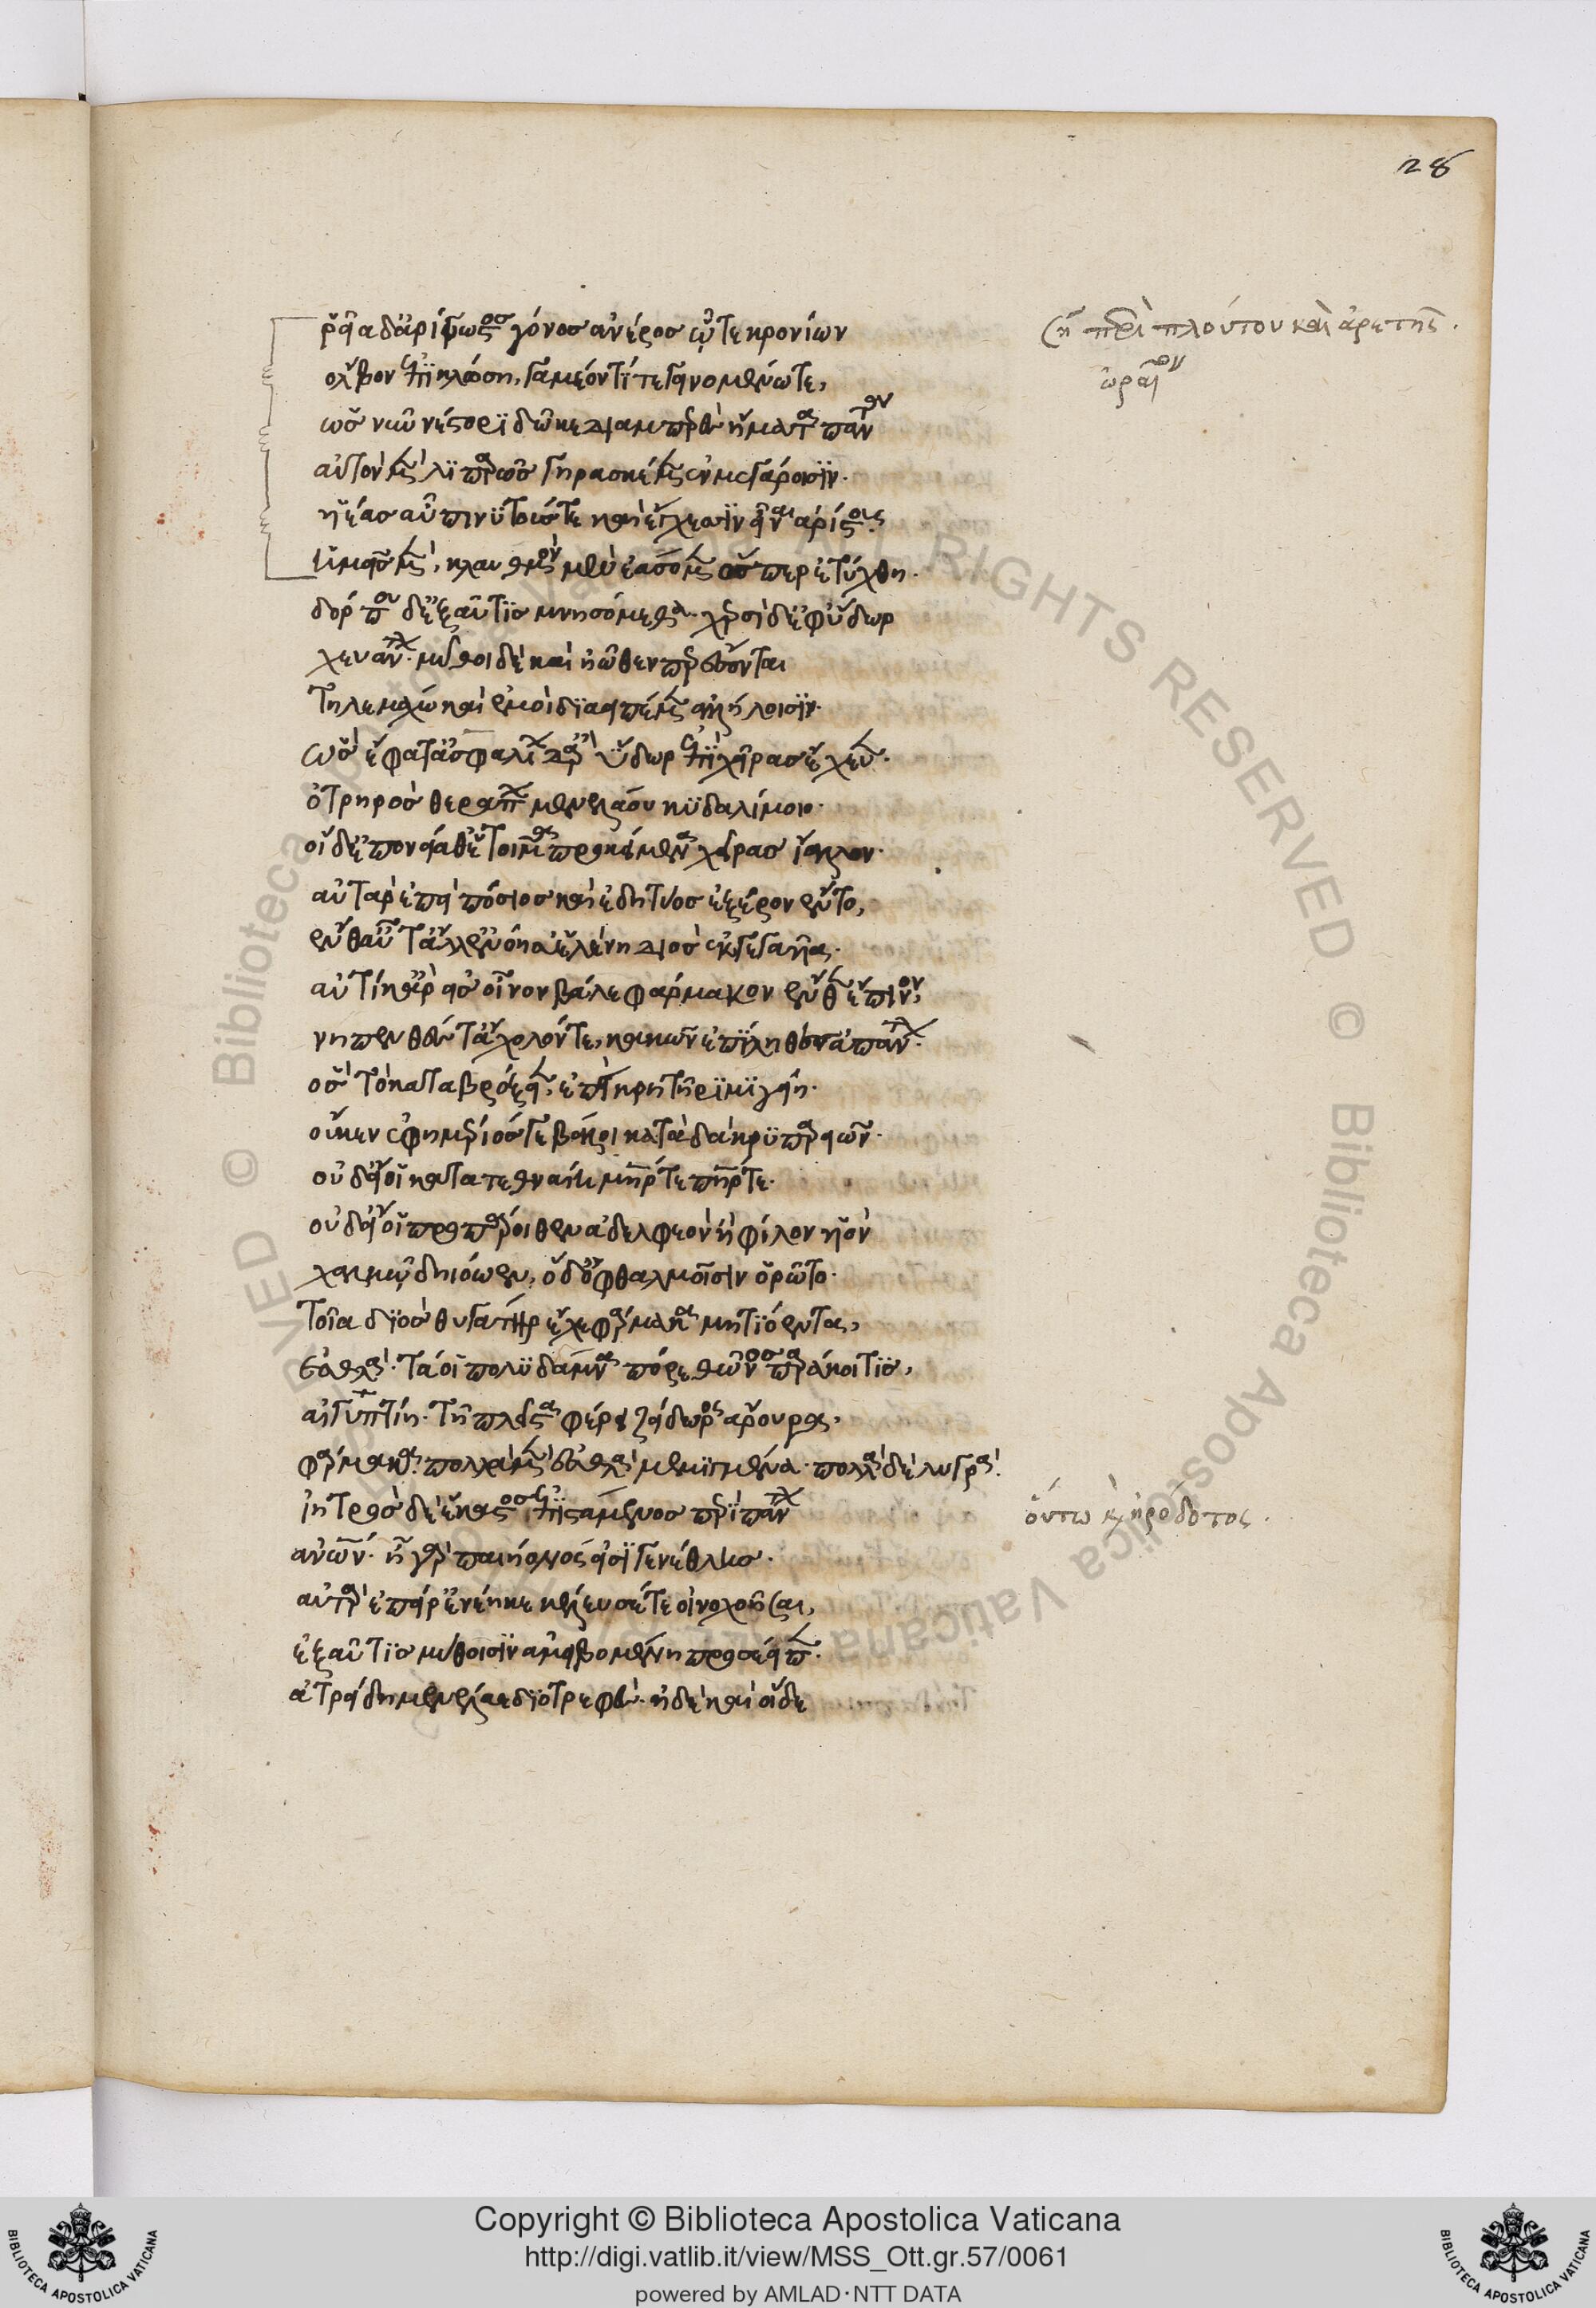 28
ῥεῖα δ' ἀρίγνωτος γόνος ἀνέρος ᾧ τε κρονίων
ὄλβον ἐπικλώσῃ, γαμέοντί τε γεινομένω τε,
ὡς νῦν νέστορι δῶκε διαμπερὲς ἤματα πάντων
αὐτὸν μὲν λιπαρῶς γηρασκέμεν ἐν μεγάροισιν.
υἱέας αὖ πινυτούς τε καὶ ἔγχεσιν εἶναι ἀρίστους.
ἡμεῖς μὲν, κλαυθμὸν μὲν ἐάσομεν ὃς περ ἐτύχθη.
δόρπου δ' ἐξαῦτις μνησόμεθα. χερσὶ δ' ἐφ' ὕδωρ
χευάντων. μῦθοι δὲ καὶ ἠῶθεν περ ἔσονται
τηλεμάχω καὶ ἐμοὶ διαειπέμεν ἀλλήλοισιν.
ὣς ἔφατ' ἀσφαλίων δ' ἄρ' ὕδωρ ἐπὶ χεῖρας ἔχευεν.
ὀτρηρὸς θεράπων μενελάου κυδαλίμοιο.
οἱ δ' ἐπ' ὀνείαθ' ἑτοῖμα προκείμενα χεῖρας ἴαλλον.
αὐτὰρ ἐπεὶ πόσιος καὶ ἐδητύος ἐξ ἔρον ἕντο,
ἔνθ' αὖτ' ἄλλ' ἐνόησ' ἑλένη διὸς ἐκγεγαυῖα.
αὐτίκ' ἄρ' εἰς οἶνον βάλε φάρμακον ἔνθεν ἔπινον,
νηπενθές τ' ἄχολόν τε, κακῶν ἐπίληθον ἁπάντων.
ὃς τὸ καταβρόξειεν, ἐπὴν κρητῆρι μιγείη.
οὔ κεν ἐφημέριός γε βάλοι κατὰ δάκρυ παρειῶν.
οὐδ' εἴ οἱ κατατεθναίη μήτηρ τε πατήρ τε.
οὐδ' εἴ οἱ προπάροιθεν ἀδελφεὸν ἢ φίλον υἱὸν
χαλκῷ δηιόωεν, ὁ δ' ὀφθαλμοῖσιν ὁρῶτο.
τοῖα διὸς θυγάτηρ ἔχε φάρμακα μητιόεντα,
ἐσθλά. τά οἱ πολύδαμνα πόρε θῶνος παράκοιτις,
αἰγυπτίη. τῇ πλεῖστα φέρει ζείδωρος ἄρουρα,
φάρμακα. πολλὰ μὲν ἐσθλὰ μεμιγμένα. πολλὰ δὲ λυγρά.
ἰητρὸς δὲ ἕκαστος ἐπιστάμενος περὶ πάντων
ἀνθρώπων. ἦ γὰρ παιήονός εἰσι γενέθλης.
αὐτὰρ ἐπεί ῥ' ἐνέηκε κέλευσέ τε οἰνοχοῆσαι,
ἐξαῦτις μύθοισιν ἀμειβομένη προσέειπεν.
ἀτρείδη μενέλαε διοτρεφές. ἠδὲ καὶ οἵδε
(ἡ περὶ πλούτου καὶ ἀρετῆς.
ὡραῖον
οὕτω καὶ ἡρόδοτος.
Copyright © Biblioteca Apostolica Vaticana
http://digi.vatlib.it/view/MSS_Ott.gr.57/0061
powered by AMLAD·NTT DATA
BIBLIOTECA APOSTOLICA VATICANA
BIBLIOTECA APOSTOLICA VATICANA